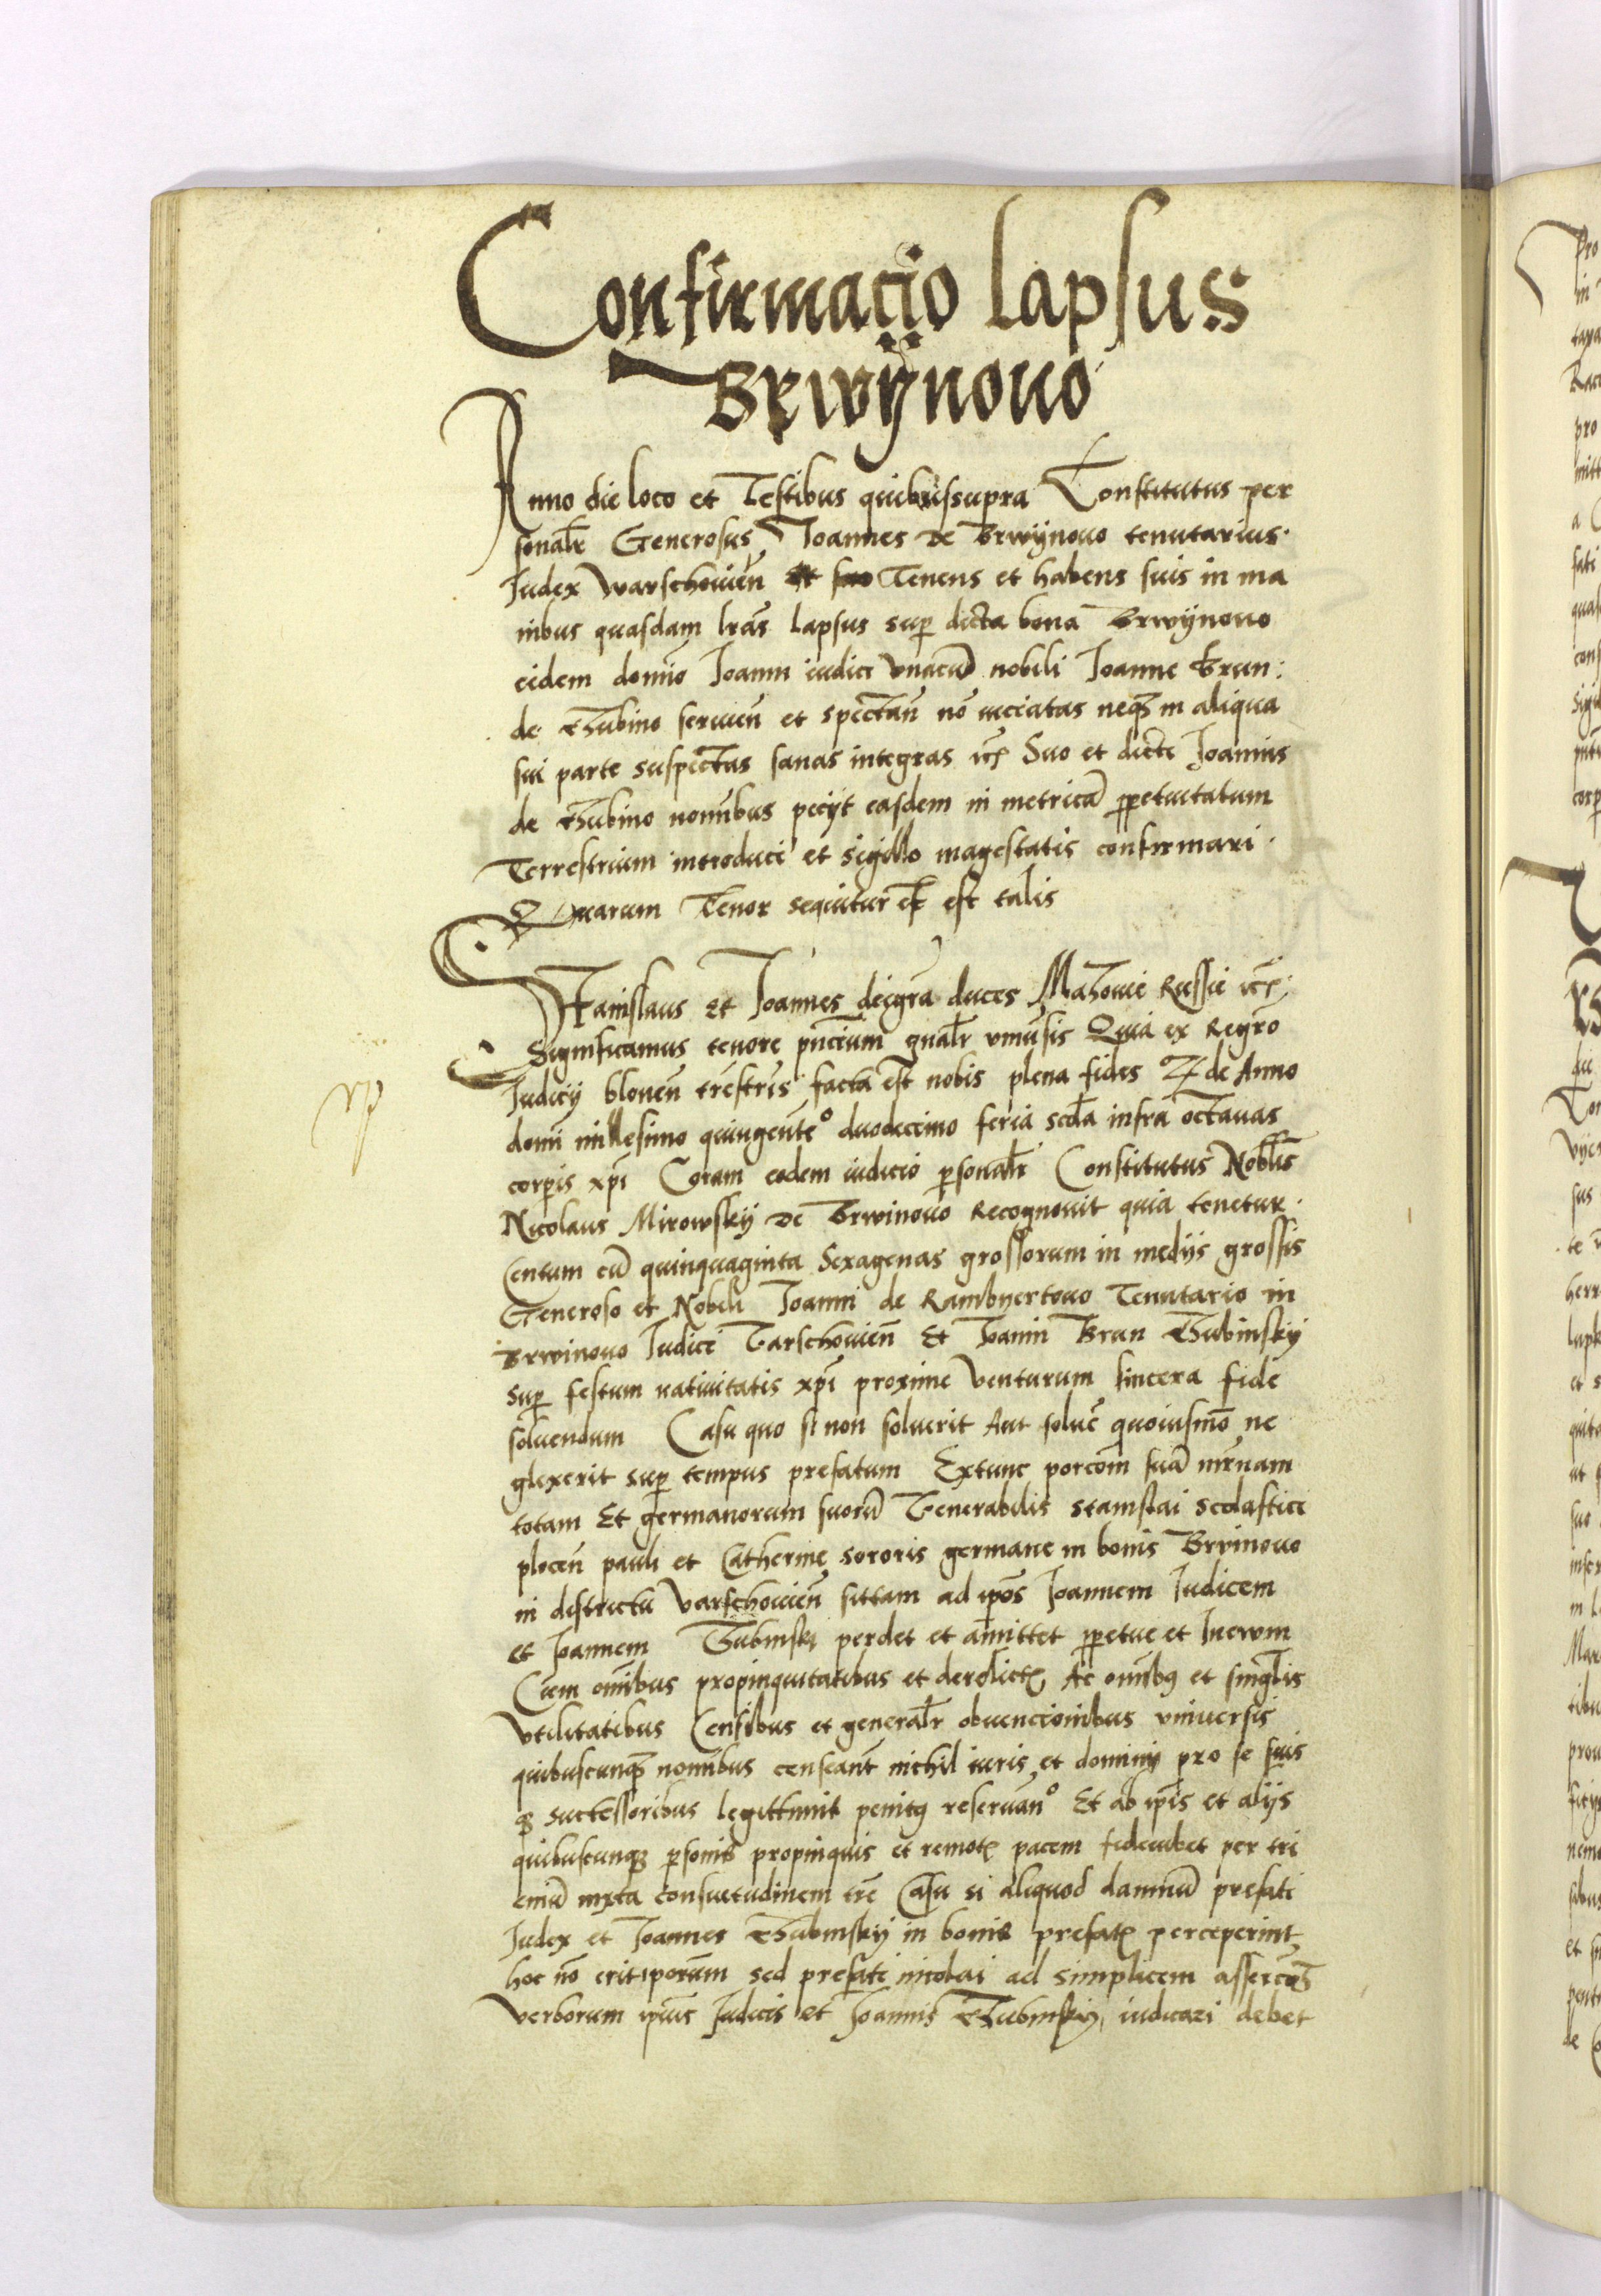 Confirmacio Lapsus
Brwÿnouo
Anno die loco et Testibus quibussupra Constitutus per
sonalr Generosus Joannes de Brwÿnouo tenutarius
Judex Warschouien Tenens et habens suis in ma
nibus quasdam lras Lapsus sup dicta bona Brwÿnouo
eidem domino Joanni iudici Vnacum nobili Joanne Brun
de Thubino seruien et spectan no viciatas neqz in aliqua
sui parte suspectas sanas integras etc Suo et dicti Joannis
de Thubino nominibus peciit easdem in metrica ppetuitatum
Terrestrium introduci et sigillo magestatis confirmari
Quarum Tenor sequitur et est talis
Stanislaus et Joannes dei gra duces Mazouie Russie etc
Significamus tenore pncium gnalr vniusis Quia ex Regro
Judicij blonen trestris facta est nobis plena fides de Anno
domi millesimo quingente° duodecimo feria scda infra octauas
corpis xpi Coram eodem iudicio psonalr Constitutus Noblis
Nicolaus Mirowskij de Brwinouo Recognouit quia tenetur
Centum cu quinquaginta Sexagenas grossorum in medijs grossis
Generoso et Nobili Joanni de Rambyertouo Tenutario in
Brwinouo Judici Varschouien Et Joanni Brun Thubinskij
sup festum natiuitatis xpi proxime Venturum sincera fide
soluendum Casu quo si non soluerit Aut solue quouismo ne
glexerit sup tempus prefatum Extunc porcom sua
totam Et germanorum suoru Venerabilis Stanislai Scolastici
plocen pauli et Catherine sororis germane in bonis Brvinouo
in districtu Varschouien sittam ad ipos Joannem Judicem
et Joannem Thubinski perdet et amittet ppetue et Ineuum
Cum omibus propinquitatibus et derelict Ac omibus et singlis
Vtilitatibus Censibus et generalr obuencionibus vniuersis
quibuscunqz nomibus censeant nichil iuris et dominij pro se suis
qz successoribus legittimis penitus reseruan° Et ab ipis et alijs
quibuscunqz psonis propinquis et remot pacem fideiubet per tri
eniu iuxta consuetudinem tre Casu si aliquod damnu prefati
Judex et Joannes Thubinskij in bonis prefat perceperint
hoc no erit iporum sed prefati nicolai ad simplicem
Verborum ipius Judicis et Joannis Thubinskij iudicari debet